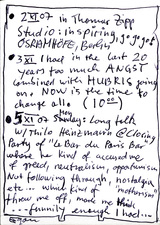 2 XI 07 in Thomas Zipp
Studio: inspiring, go go go!
OSRAMHÖFE, Berlin
3 XI I had in the last 20
years too much ANGST
combined with HUBRIS going
on. NOW is the time to
change all (10
5 XI 07 Sunday: Long talk
w/ Thilo Heinzmann @ Closing
Party of "La Bar du Paris Bar"
where he kind of accused me
of greed, neutralism, opportunism.
Not following through, nostalgia
etc... What kind of "nothernism"
threw me off, made me think
......funnily enough I had...